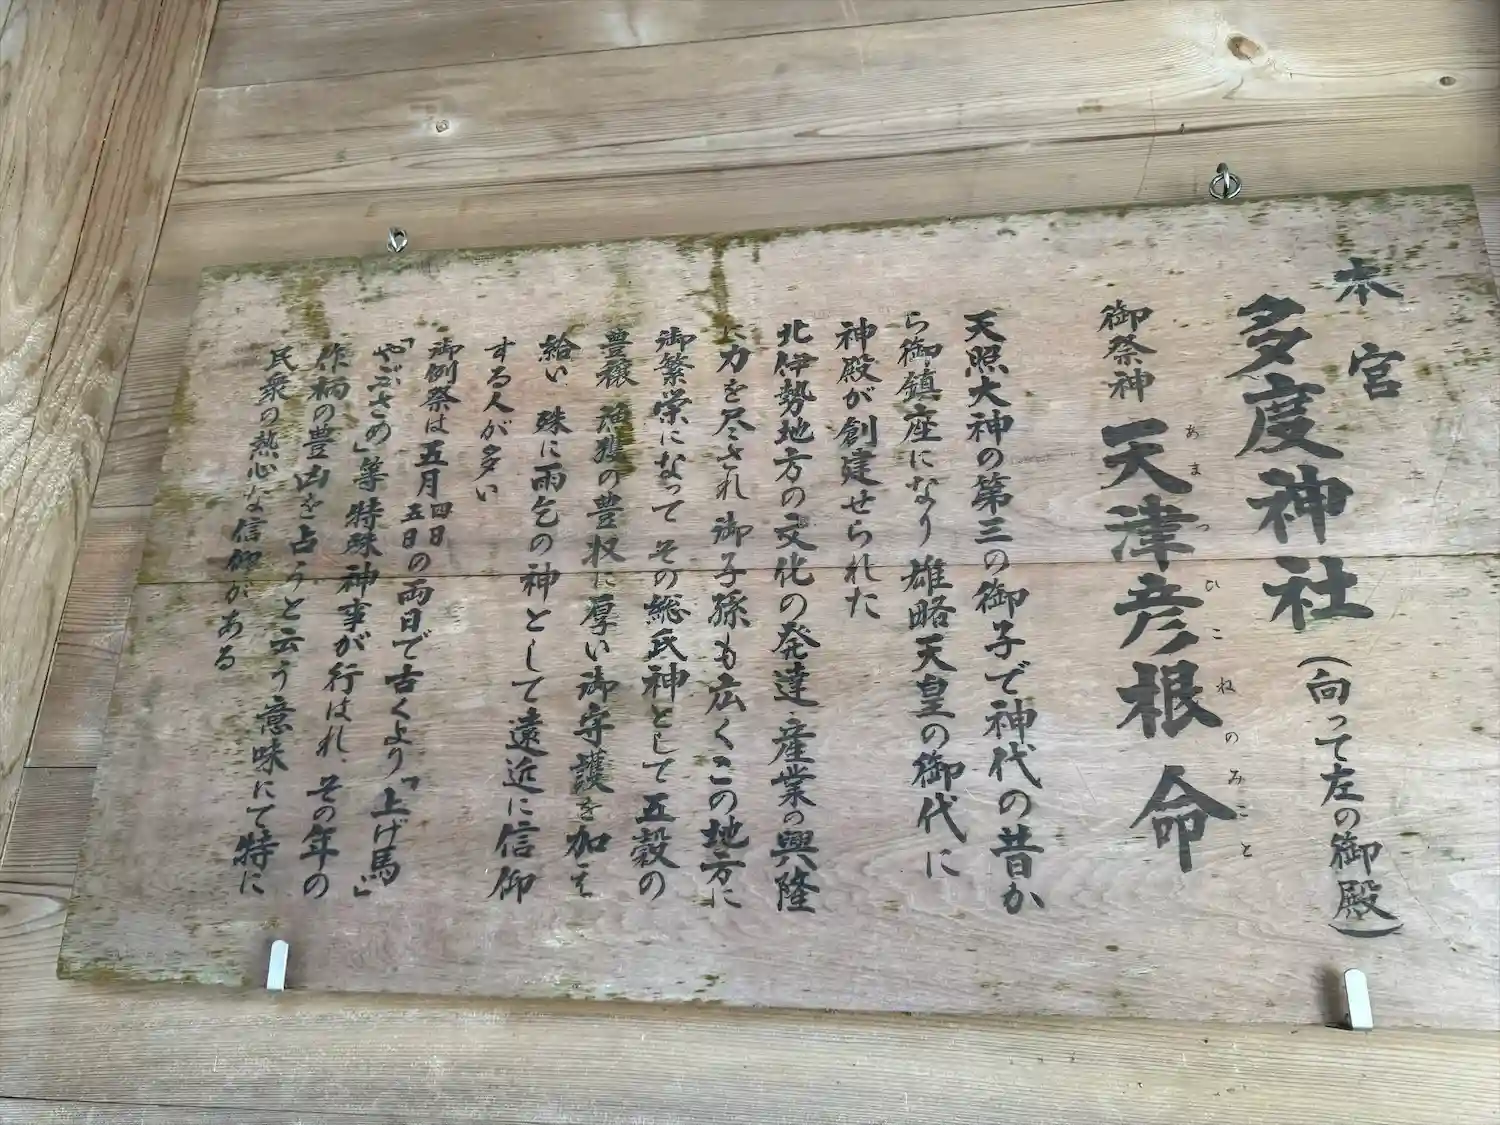 本宮
多度神社(向って左の御殿)
御祭神 天津彦根命
あまつひこねのみこと
天照大神の第三の御子で神代の昔か
ら御鎮座になり 雄略天皇の御代に
神殿が創建せられた
北伊勢地方の文化の発達 産業の興隆
に力を尽され 御子孫も広くこの地方に
御繁栄になって その総氏神として 五穀の
豊穣 漁獲の豊収に厚い御守護を加え
給い 殊に雨乞の神として遠近に信仰
する人が多い
御例祭は五月四日五日の両日で古くより「上げ馬」
「やぶさめ」等特殊神事が行はれ、その年の
作柄の豊凶を占うと云う意味にて特に
民衆の熱心な信仰がある